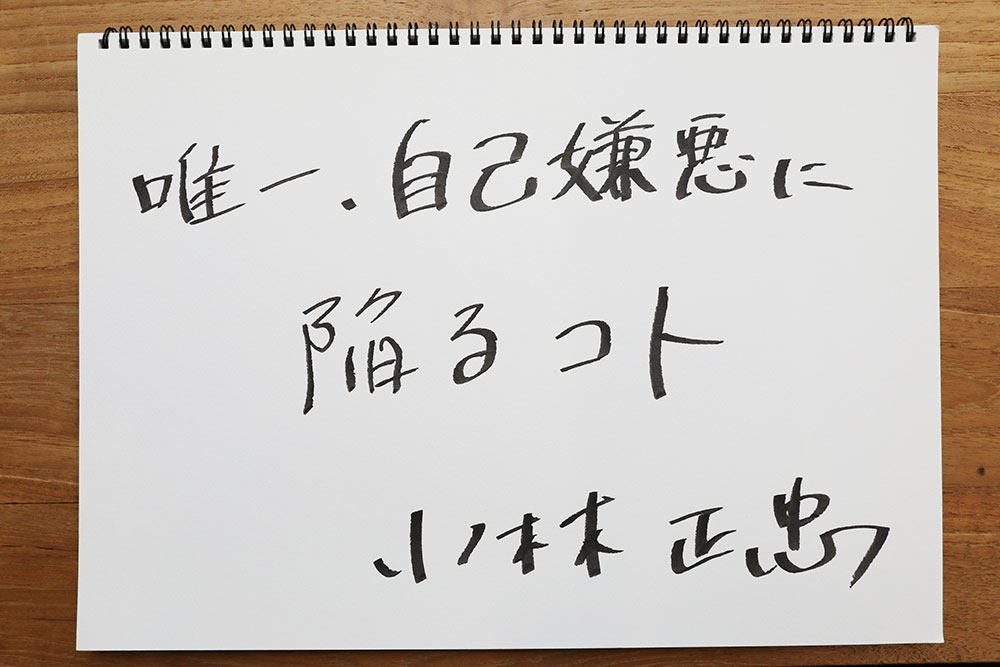 唯一、自己嫌悪に
陥るコト
小林 正忠